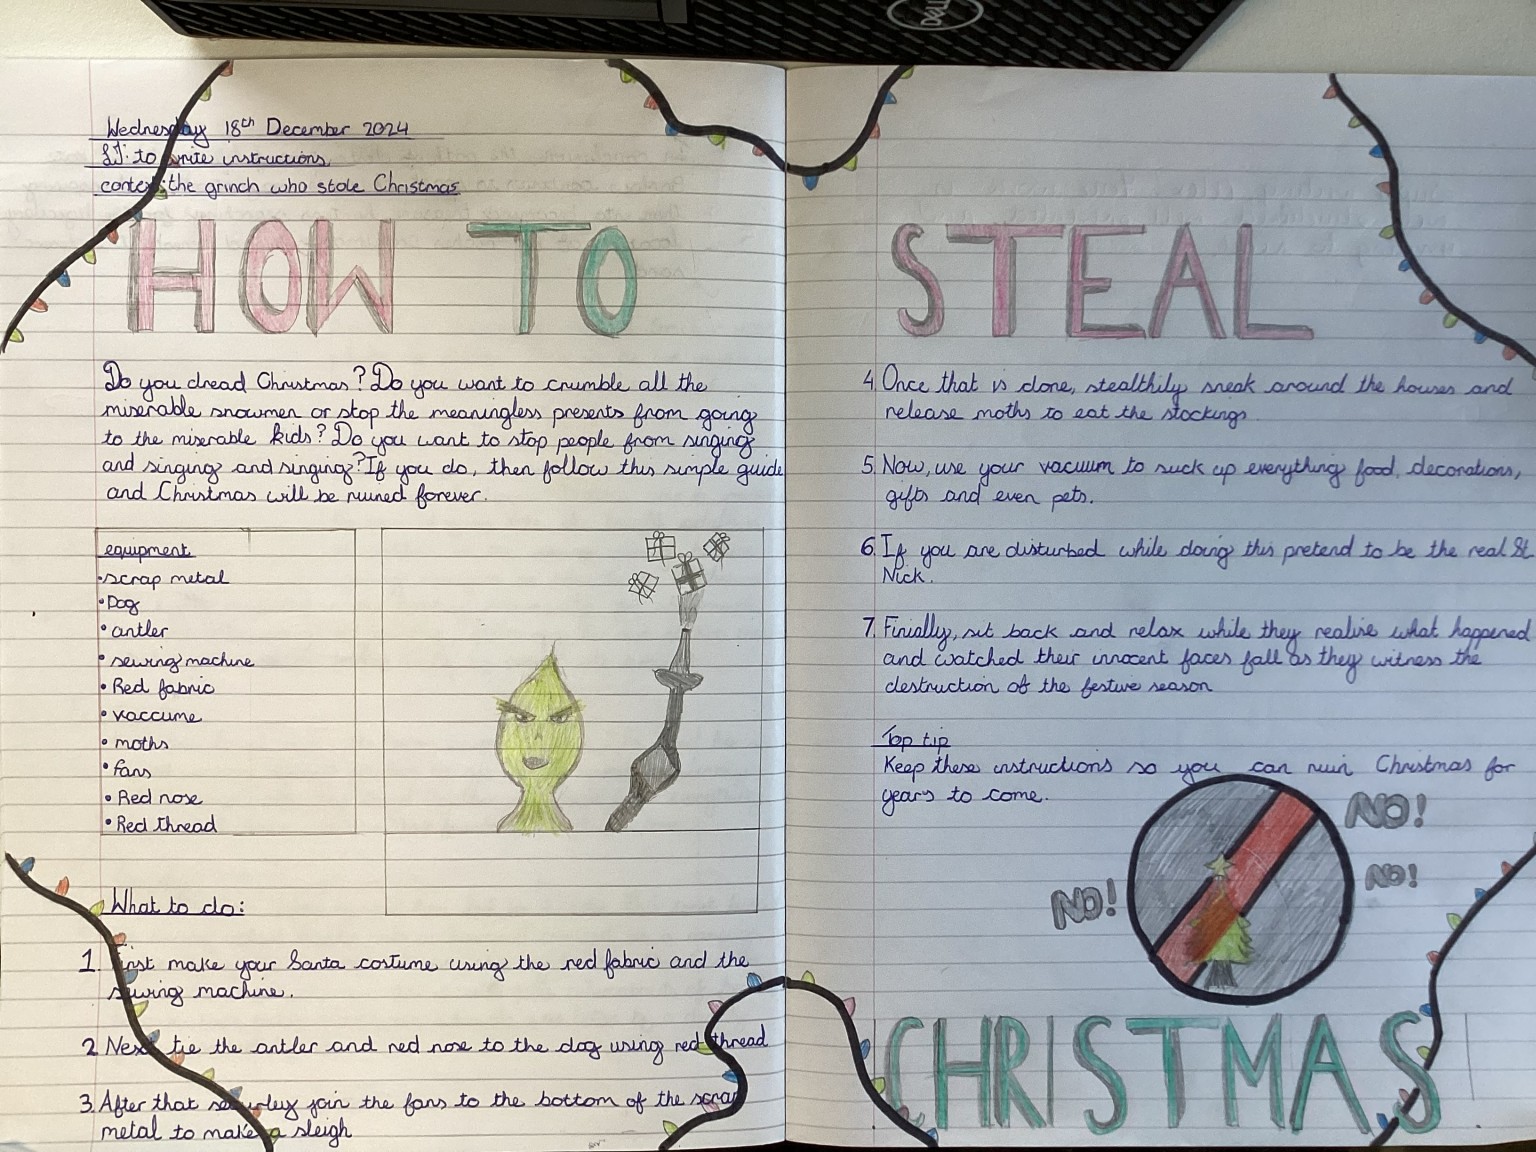 DELL
Wednesday 18th December 2024
LI: to write instructions,
context: the grinch who stole Christmas
HOW TO
Do you dread Christmas? Do you want to crumble all the
miserable snowmen or stop the meaningless presents from going
to the miserable kids? Do you want to stop people from singing
and singing and singing? If you do, then follow this simple guide
and Christmas will be ruined forever.
equipment
• scrap metal
• Dog
• antler
• sewing machine
• Red fabric
• vaccume
• moths
• fans
• Red nose
• Red thread
What to do:
1. First make your Santa costume using the red fabric and the
sewing machine.
2. Next tie the antler and red nose to the dog using red thread
3. After that securley join the fans to the bottom of the scrap
metal to make a sleigh
STEAL
4. Once that is done, stealthily sneak around the houses and
release moths to eat the stockings
5. Now, use your vacuum to suck up everything food, decorations,
gifts and even pets.
6. If you are disturbed while doing this pretend to be the real St.
Nick.
7. Finially, sit back and relax while they realise what happened
and watched their innocent faces fall as they witness the
destruction of the festive season
Top tip
Keep these instructions so you can ruin Christmas for
years to come.
NO!
NO!
NO!
CHRISTMAS